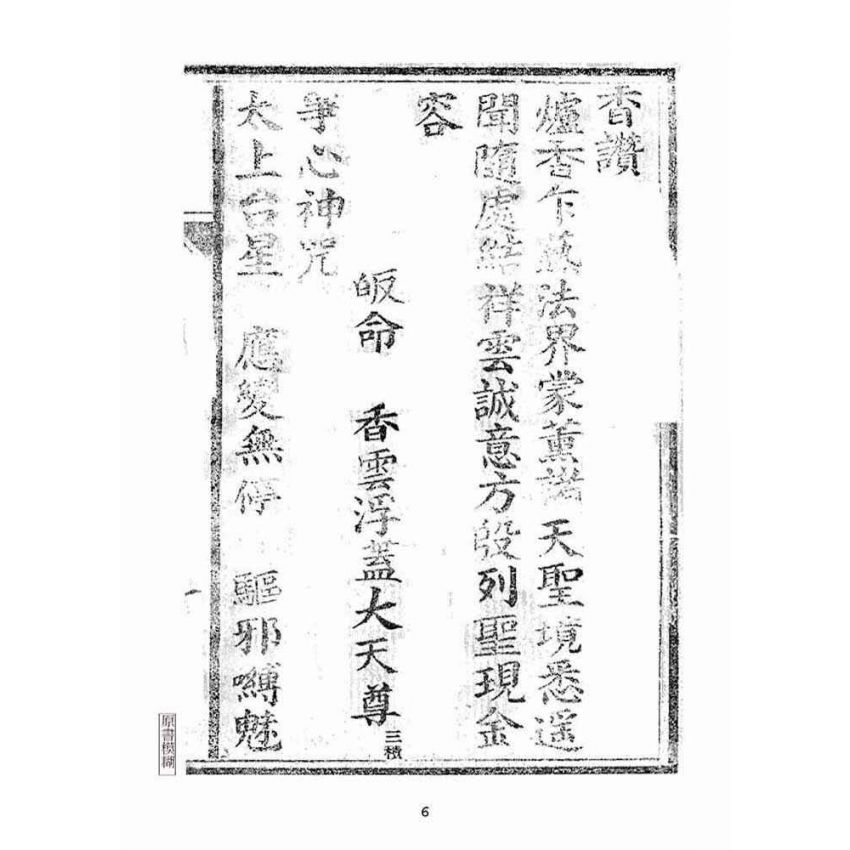 香讚
爐香乍爇法界蒙薰諸 天聖境悉遥
聞隨處結祥雲誠意方殷列聖現金
容
皈命 香雲浮蓋大天尊 三稱
爭心神咒
太上台星 應變無停 驅邪嚩魅
原書模糊
6